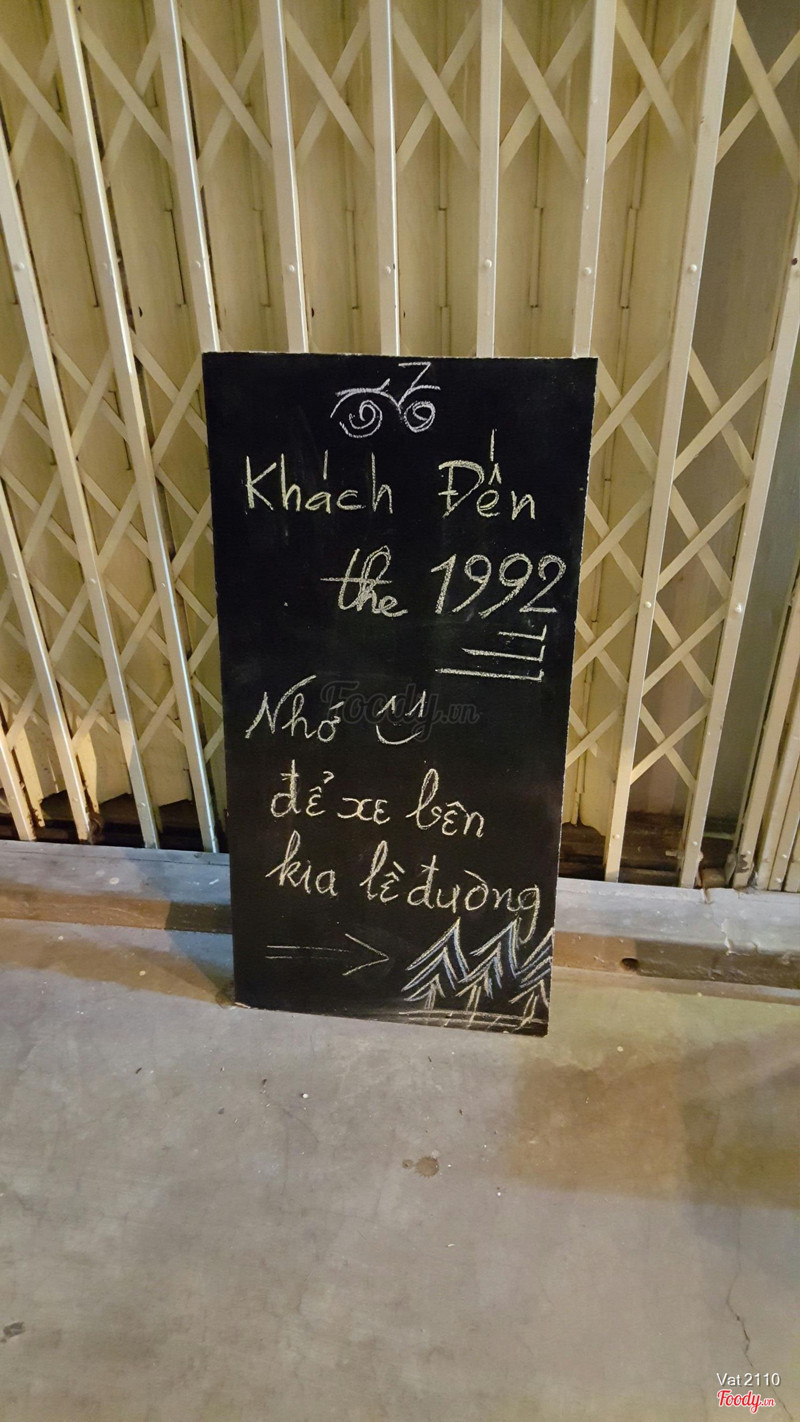 Khách Đến
the 1992
Nhớ
Foody.vn
để xe bên
kia lề đường
Vat2110
Foody.vn